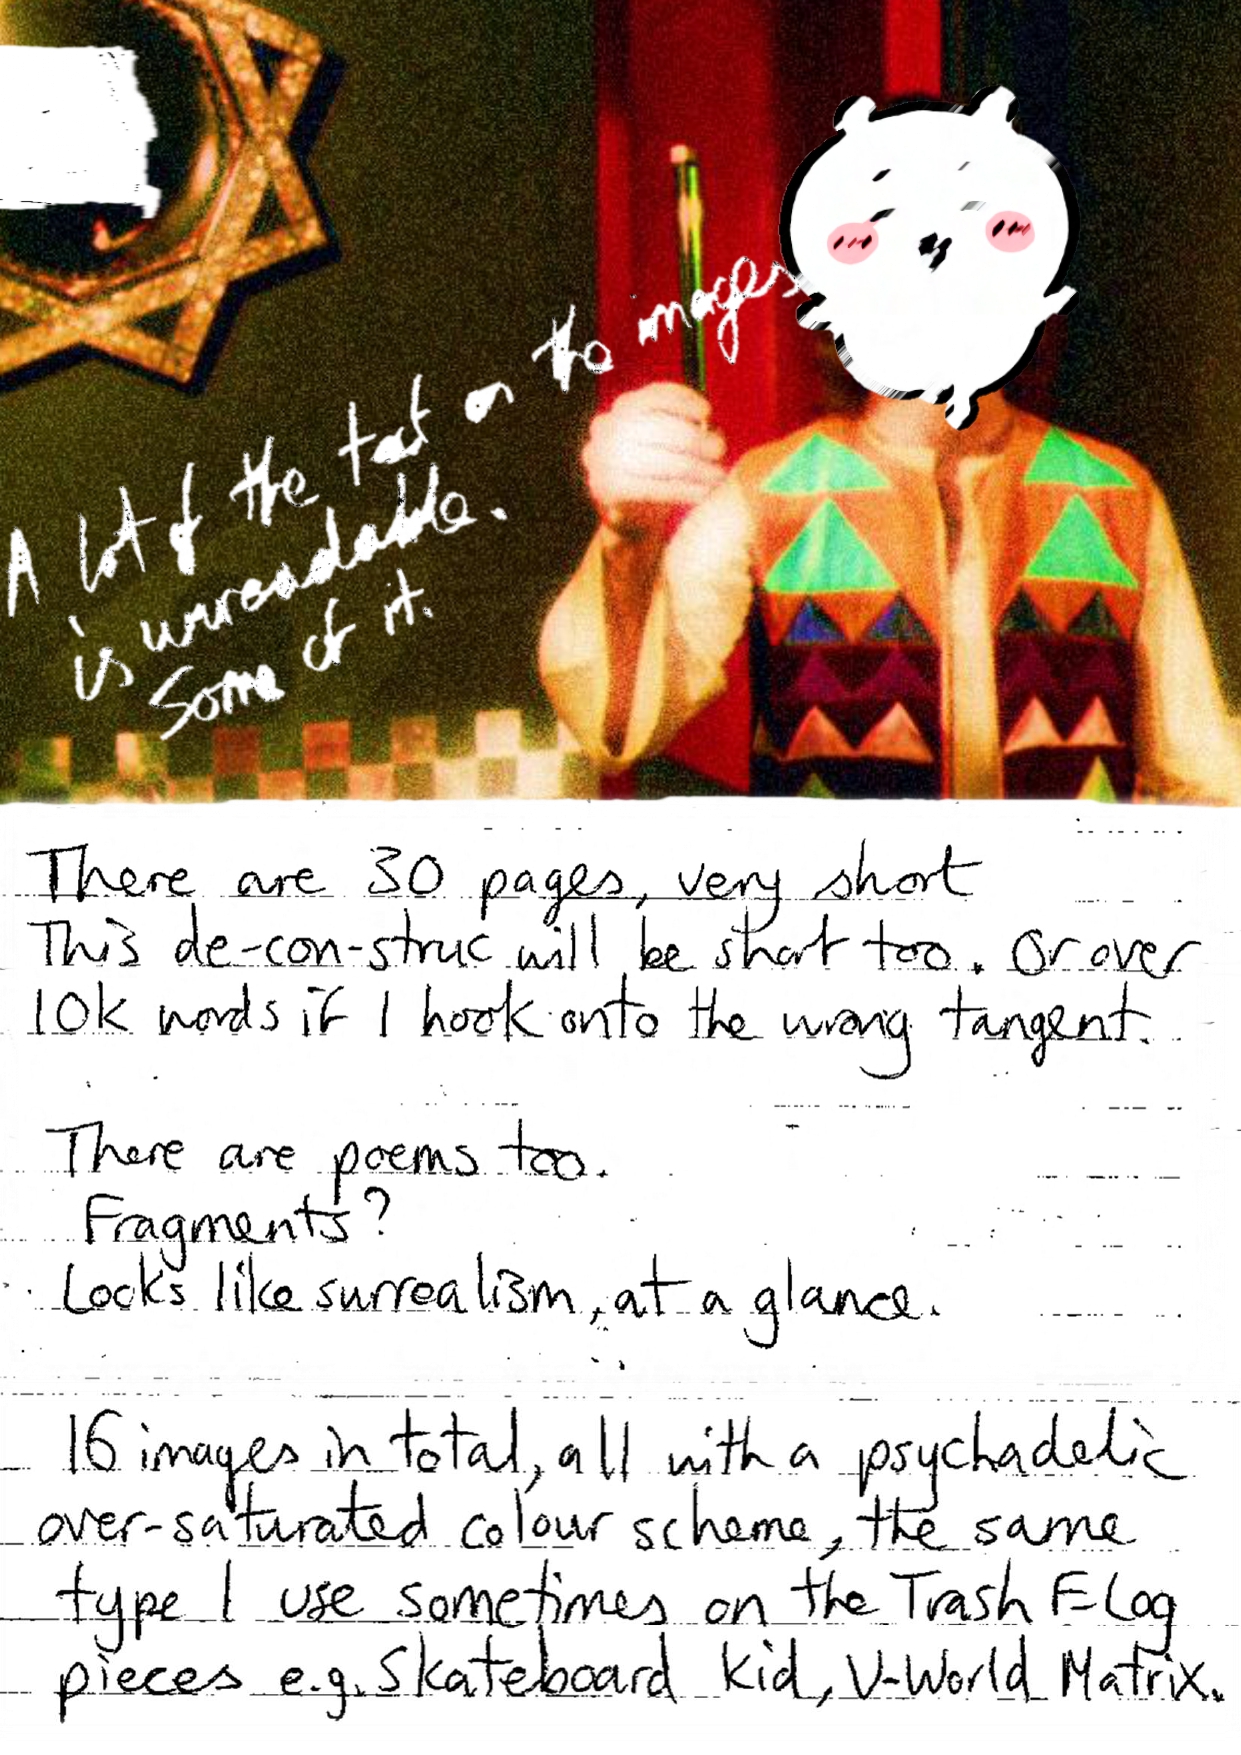 A lot of the text on the images
is unreadable.
Some of it.
There are 30 pages, very short
This de-con-struc will be short too. Or over
10k words if I hook onto the wrong tangent.
There are poems too.
Fragments?
Looks like surrealism, at a glance.
16 images in total, all with a psychadelic
over-saturated colour scheme, the same
type I use sometimes on the Trash FLog
pieces e.g. Skateboard Kid, V-World Matrix.